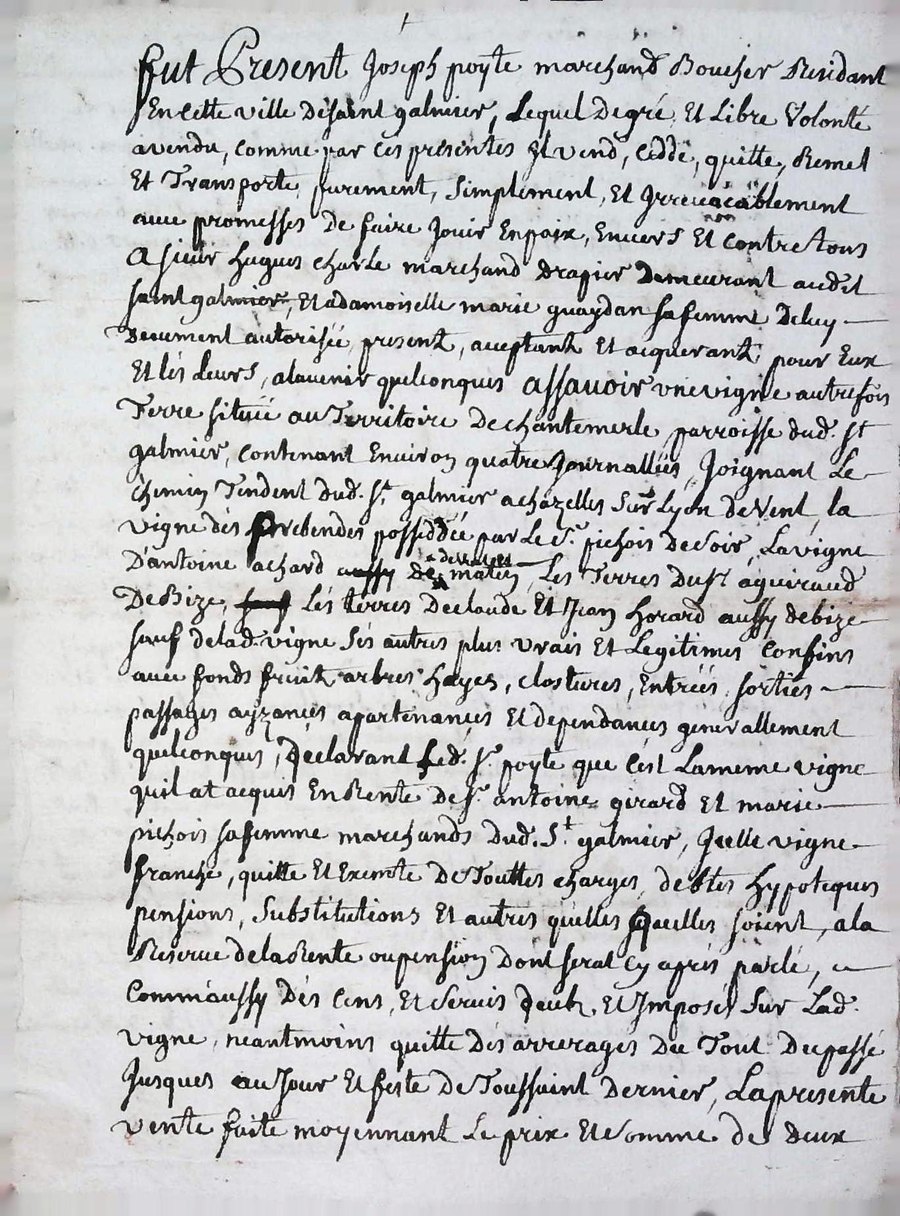 fut Present Joseph poyte marchand Boucher Residant
En cette ville de saint galmier, Lequel de gré Et Libre Volonté
a vendu, comme par ces presentes Il vend, cedde, quitte, Remet
Et Transporte, purement, Simplement, Et Irrevocablement
avec promesses De faire Jouir En paix, Envers Et contre tous
A sieur hugues charle marchand drapier Demeurant audit
saint galmier, Et a damoiselle marie guaydan sa femme De luy
Deuement autorisée, present, acceptant Et acquerant, pour Eux
Et lés Leurs, alavenir quelconques assavoir une vigne autrefois
Terre situeé au Territoire De chantemerle parroisse dud. st
galmier, contenant Environ quatre Journalliés, Joignant Le
chemin Tendent dud. St. galmier a chazelles Sur Lyon de Vent, la
vigne dés prebendes posseddée par Le Sr. pichois de Soir, La vigne
D'antoine achard aussy de matin, Les Terres du Sr aguiraud
De Bize, sauf Lés terres De claude Et Jean horard aussy debize
sauf de lad. vigne Sés autres plus vrais Et Legitimes confins
avec fonds fruit arbres hayes, clostures, Entrées sorties
passages ayzances apartenances Et dependances generallement
quelconques, declarant led. Sr. poyte que c'est La meme vigne
quil at acquis En Rente de Sr. antoine girard Et marie
pichois sa femme marchands dud. St. galmier, Icelle vigne
franche, quitte Et Exemte De Touttes charges, debtes hypoteques
pensions, Substitutions Et autres quelles quelles soient, a la
Reserve de la Rente ou pension dont serat cy aprés parlé,
comm'aussy Dés cens, Et servis deubz, Et Imposés Sur Lad.
vigne, neantmoins quitte dés arrerages Du Tout du passé
Jusques au Jour Et feste de Toussaint dernier, La presente
vente faite moyennant Le prix Et somme de deux